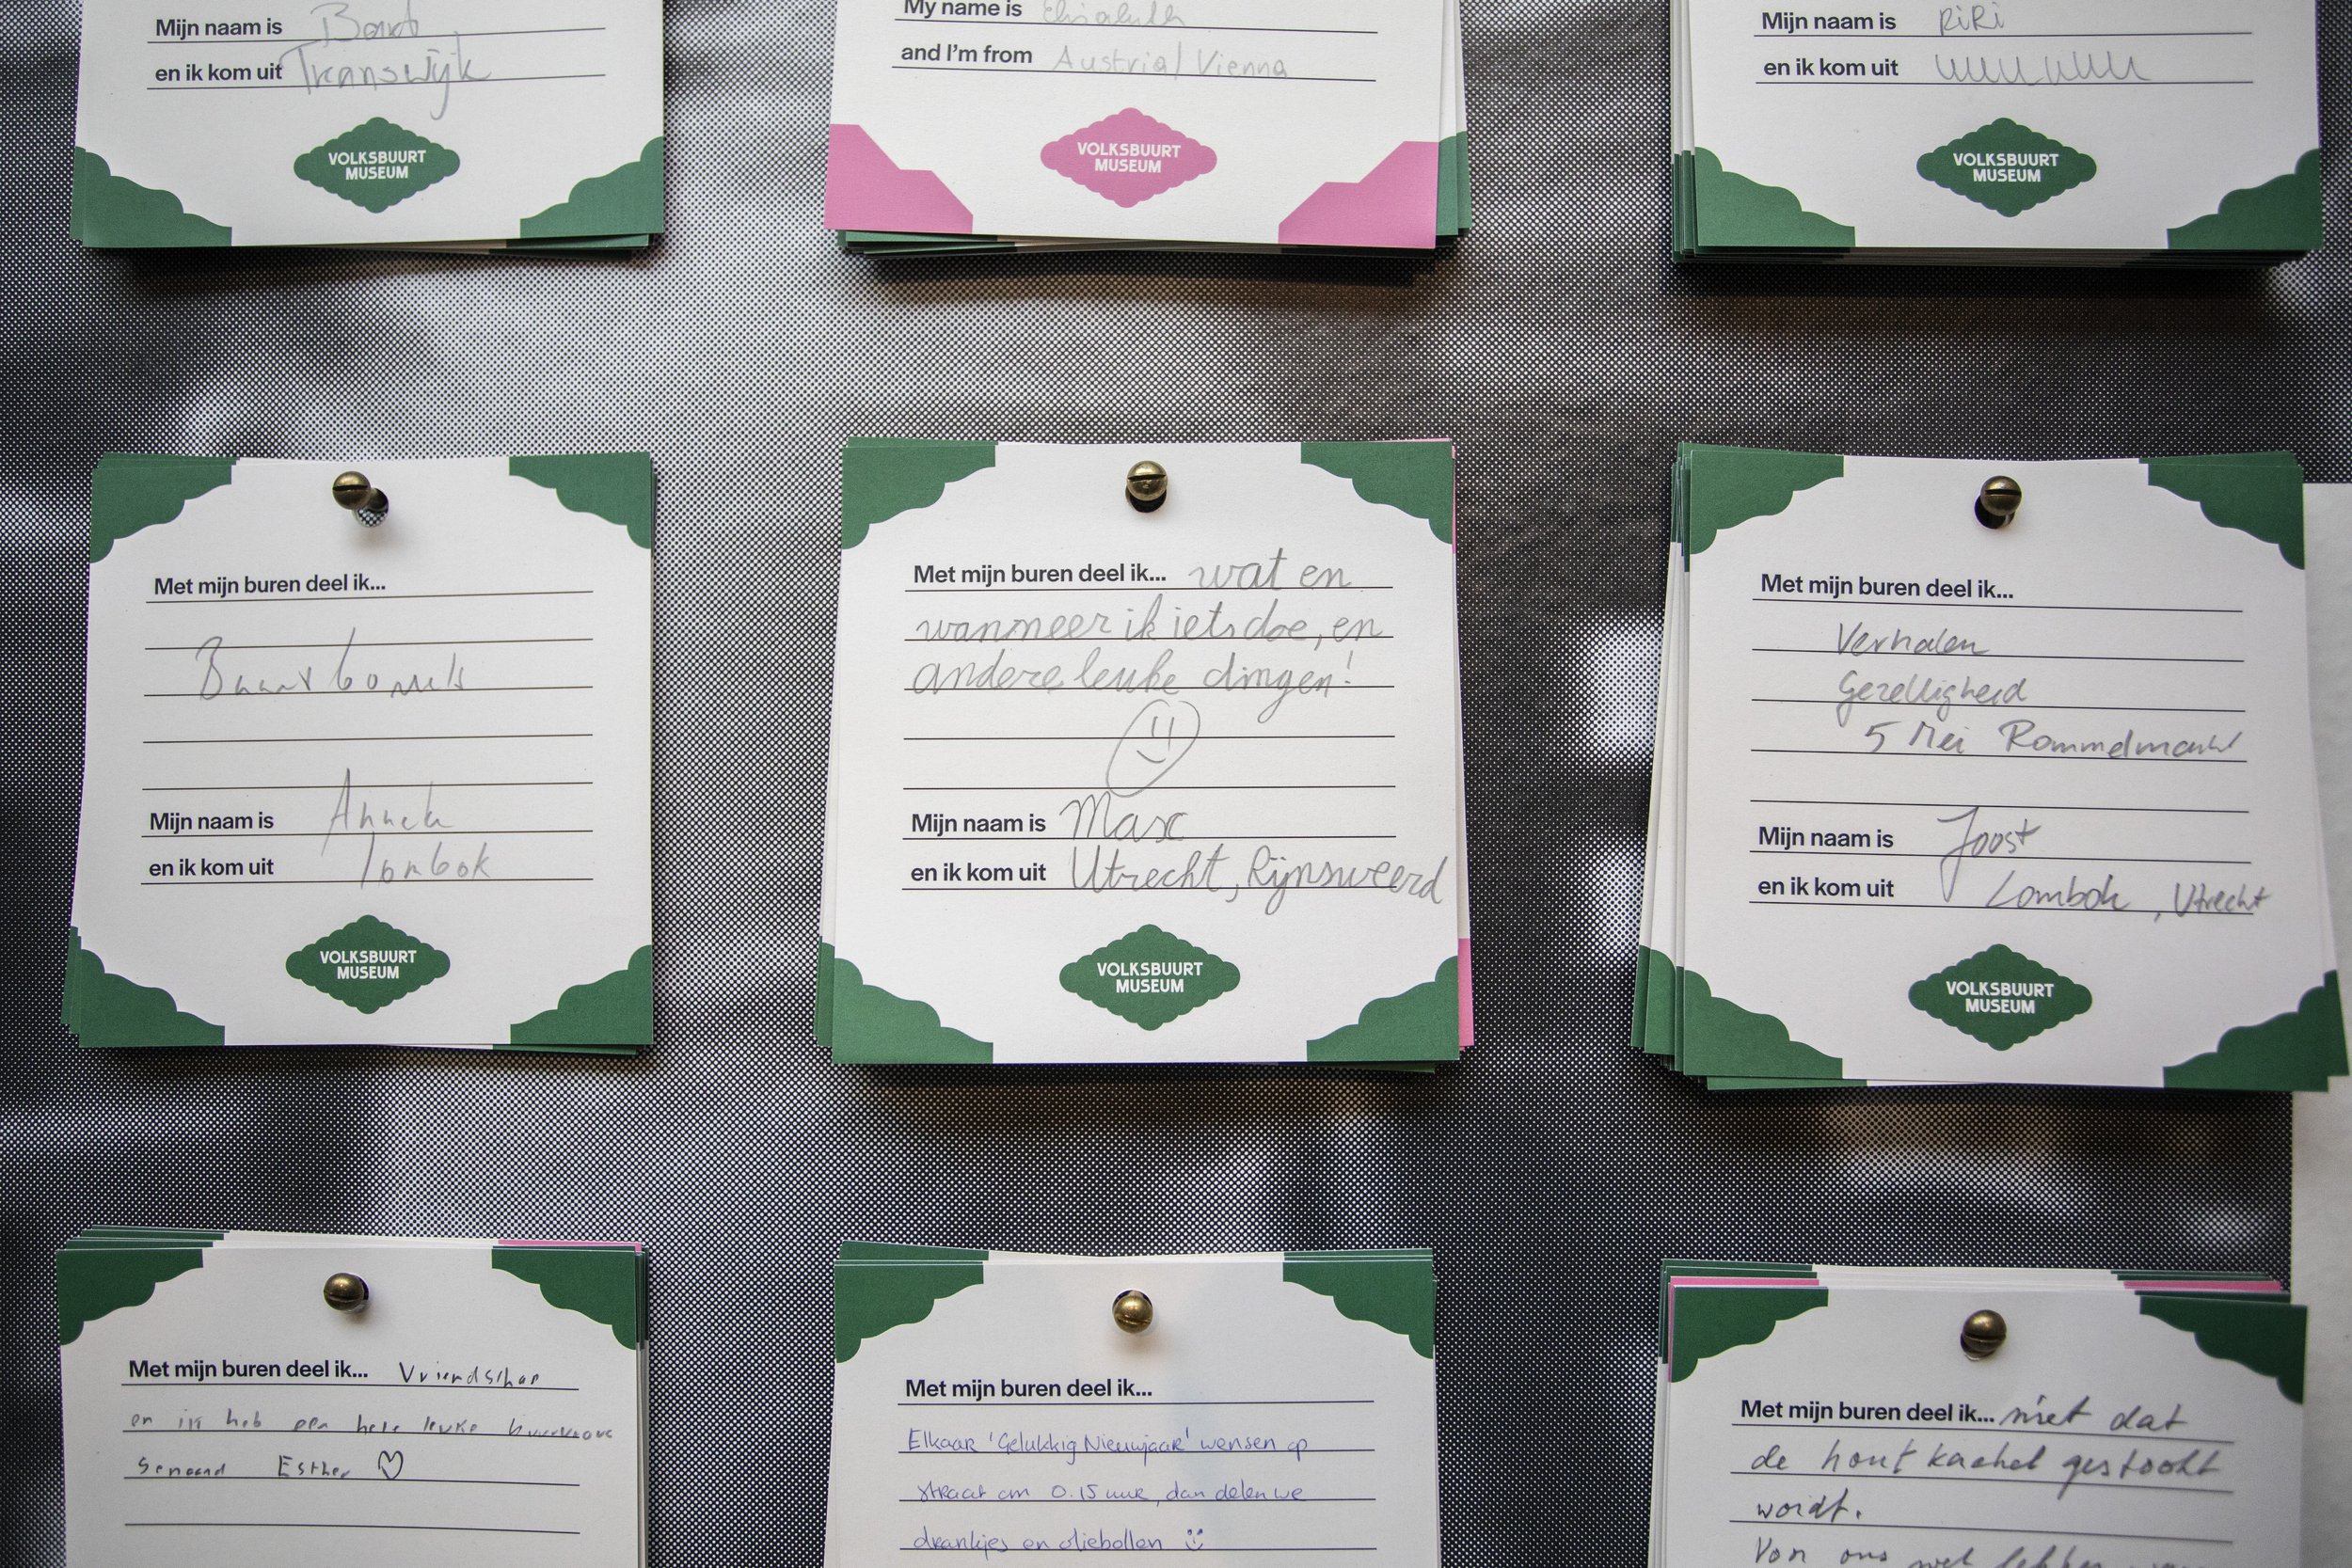 Mijn naam is Bart
en ik kom uit Transwijk
VOLKSBUURT
MUSEUM
My name is Elisabeth
and I'm from Austria/ Vienna
VOLKSBUURT
MUSEUM
Mijn naam is RiRi
en ik kom uit
VOLKSBUURT
MUSEUM
Met mijn buren deel ik...
Mijn naam is
en ik kom uit lombok
VOLKSBUURT
MUSEUM
Met mijn buren deel ik... wat en
wanneer ik iets doe, en
andere leuke dingen!
Mijn naam is Max
en ik kom uit Utrecht, Rijnsweerd
VOLKSBUURT
MUSEUM
Met mijn buren deel ik...
Verhalen
Gezelligheid
5 Mei Rommelmarkt
Mijn naam is Joost
en ik kom uit Lombok, Utrecht
VOLKSBUURT
MUSEUM
Met mijn buren deel ik... Vriendschap
en ik heb een hele leuke
genaamd Esther
Met mijn buren deel ik...
Elkaar 'Gelukkig Nieuwjaar' wensen op
straat om 0.15 uur, dan delen we
drankjes en oliebollen
Met mijn buren deel ik... niet dat
de hout kachel gestookt
wordt.
Van ons wel lekker